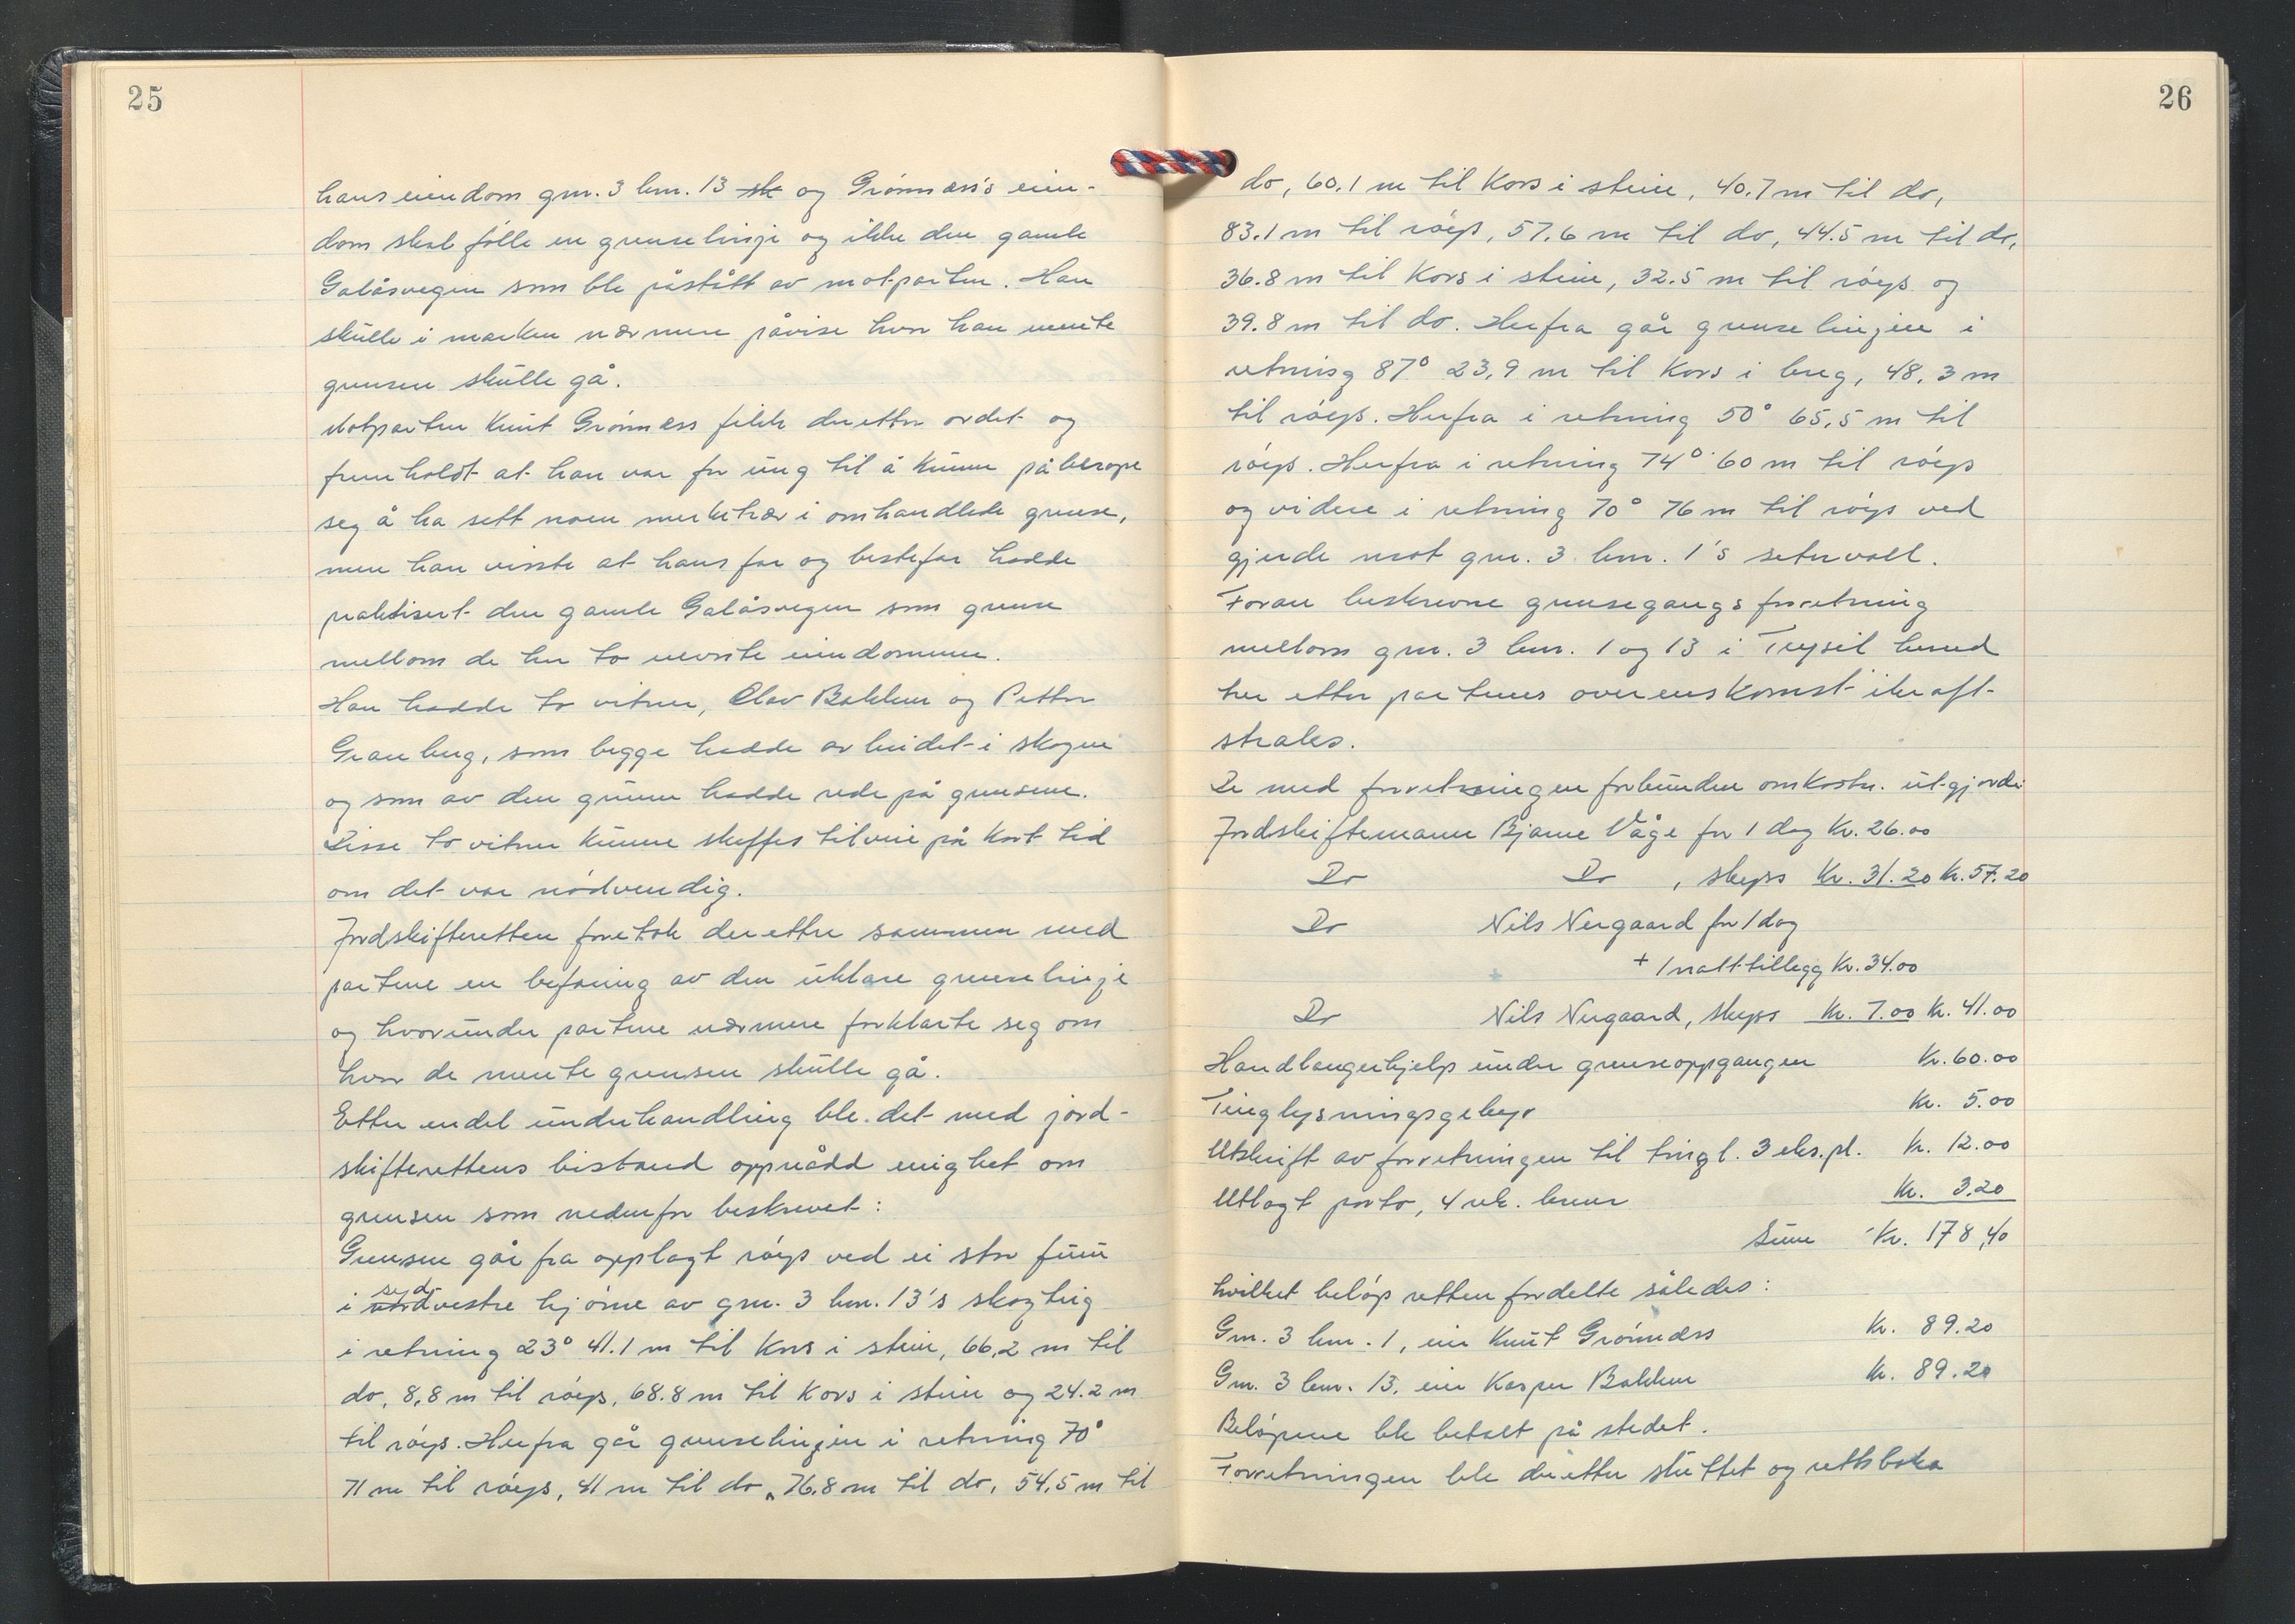 25
hans eiendom gnr. 3 bnr. 13 sk og Grönnæss's eien-
dom skal fölle en grenselinje og ikke den gamle
Galåsvegen som ble påstått av motparten. Han
skulle i marken nærmere påvise hvor han mente
grensen skulle gå.
Motparten Knut Grönnæss fikk deretter ordet og
fremholdt at han var for ung til å kunne påberope
seg å ha sett noen merketrær i omhandlede grense,
men han visste at hans far og bestefar hadde
praktisert den gamle Galåsvegen som grense
mellom de her to nevnte eiendommer.
Han hadde to vitner, Olav Bakken og Petter
Granberg, som begge hadde arbeidet i skogen
og som av den grunn hadde rede på grensene.
Disse to vitner kunne skaffes tilveie på kort tid
om det var nödvendig.
Jordskifteretten foretok deretter sammen med
partene en befaring av den uklare grenselinje
og hvorunder partene nærmere forklarte seg om
hvor de mente grensen skulle gå.
Etter endel underhandling ble det med jord-
skifterettens bistand oppnådd enighet om
grensen som nedenfor beskrevet:
Grensen går fra opplagt röys ved ei stor furu
i nordvestre syd hjörne av gnr. 3 bnr. 13's skogteig
i retning 23° 41.1 m til Kors i stein, 66,2 m til
do, 8,8 m til röys, 68.8 m til Kors i stein og 24.2 m
til röys. Herfra går grenselinjen i retning 70°
71 m til röys, 41 m til do, 76.8 m til do, 54,5 m til
26
do, 60.1 m til Kors i stein, 40.7 m til do,
83.1 m til röys, 57.6 m til do, 44.5 m til do,
36.8 m til Kors i stein, 32.5 m til röys og
39.8 m til do. Herfra går grenselinjen i
retning 87° 23,9 m til Kors i berg, 48,3 m
til röys. Herfra i retning 50° 65,5 m til
röys. Herfra i retning 74° 60 m til röys
og videre i retning 70° 76 m til röys ved
gjerde mot gnr. 3 bnr. 1's setervoll.
Foran beskrevne grensegangsforretning
mellom gnr. 3 bnr. 1 og 13 i Trysil herred
trer etter partenes overenskomst ikraft
straks.
De med forretningen forbundne omkostn. utgjorde
Jordskiftemann Bjarne Våge for 1 dag Kr. 26.00
Do Do , skyss Kr. 31.20 Kr. 57.20
Do Nils Nergaard for 1 dag
+ 1 natt-tillegg Kr. 34.00
Do Nils Nergaard, skyss Kr. 7.00 Kr. 41.00
Handlangerhjelp under grenseoppgangen Kr. 60.00
Tinglysningsgebyr Kr. 5.00
Utskrift av forretningen til tingl. 3 eks.pl. Kr. 12.00
Utlagt porto, 4 rek. brever Kr. 3.20
Sum Kr. 178,40
hvilket belöp retten fordelte således:
Gnr. 3 bnr. 1, eier Knut Grönnæss Kr. 89.20
Gnr. 3 bnr. 13, eier Kasper Bakken Kr. 89.20
Belöpene ble betalt på stedet.
Forretningen ble deretter sluttet og rettsboka